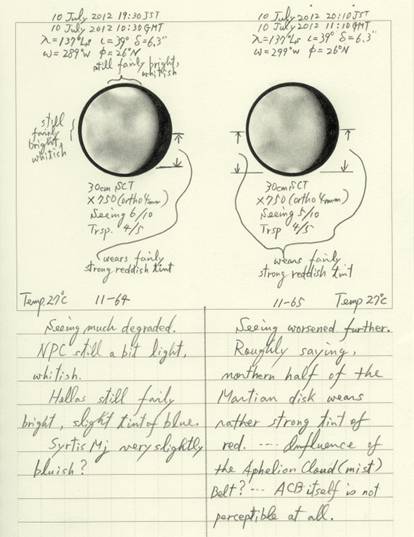 10 July 2012 19:30 JST
10 July 2012 10:30 GMT
λ=137°Ls ι=39° δ=6.3"
ω=289°W φ=26°N
still fairly bright,
whitish
still
fairly
bright,
whitish
30cm SCT
×750 (ortho4mm)
Seeing 6/10
Trsp. 4/5
wears fairly
strong reddish tint
Temp. 27°C
11-64
Seeing much degraded.
NPC still a bit light,
whitish.
Hellas still fairly
bright, slight tint of blue.
Syrtis Mj very slightly
bluish?
10 July 2012 20:10 JST
10 July 2012 11:10 GMT
λ=137°Ls ι=39° δ=6.3"
ω=299°W φ=26°N
30cm SCT
×750 (ortho4mm)
Seeing 5/10
Trsp 4/5
wears fairly
strong reddish tint
11-65
Temp 27°C
Seeing worsened further.
Roughly saying,
northern half of the
Martian disk wears
rather strong tint of
red. ---- Influence of
the Aphelion Cloud (mist)
Belt? --- ACB itself is not
perceptible at all.